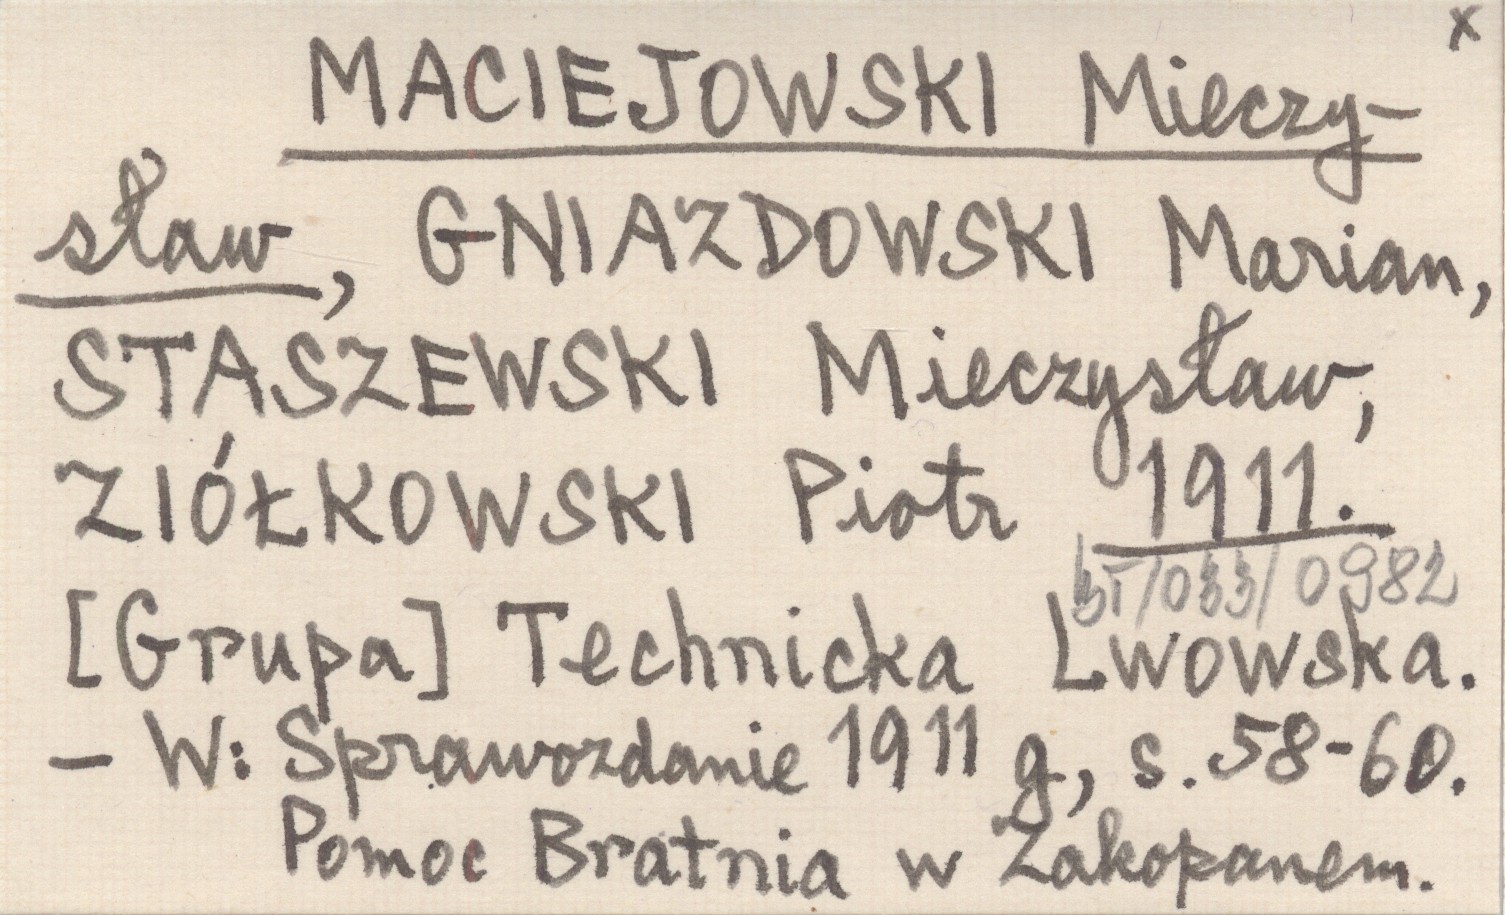 x
MACIEJOWSKI Mieczy-
sław, GNIAZDOWSKI Marian,
STASZEWSKI Mieczysław,
ZIÓŁKOWSKI Piotr 1911.
/033/0982
[Grupa] Technicka Lwowska.
– W: Sprawozdanie 1911 g, s. 58-60.
Pomoc Bratnia w Zakopanem.